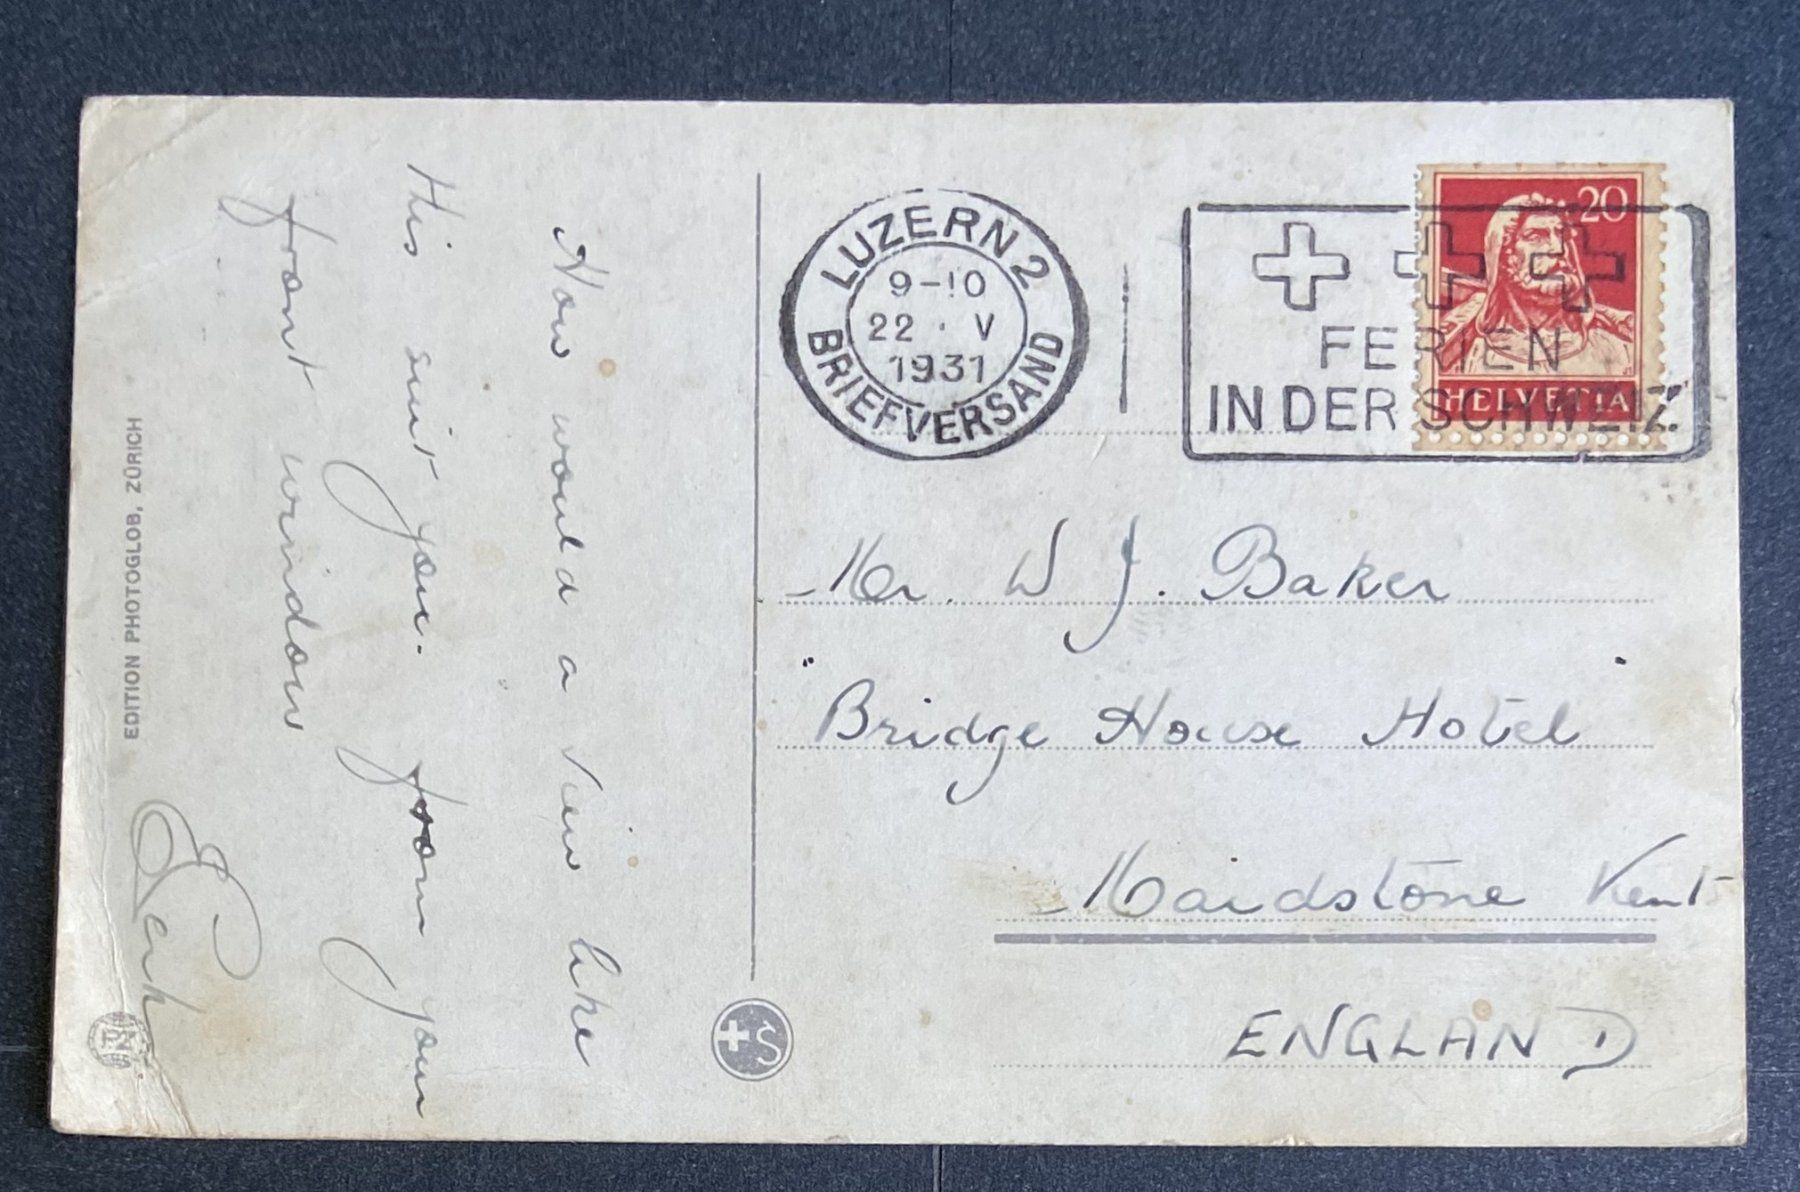 How would a view like
this suit you. from your
front window
EDITION PHOTOGLOB, ZÜRICH
LUZERN 2
9-10
22 · V
1931
BRIEFVERSAND
FERIEN
IN DER SCHWEIZ
20
HELVETIA
Mr. W J. Baker
"Bridge House Hotel"
Maidstone Kent
ENGLAND